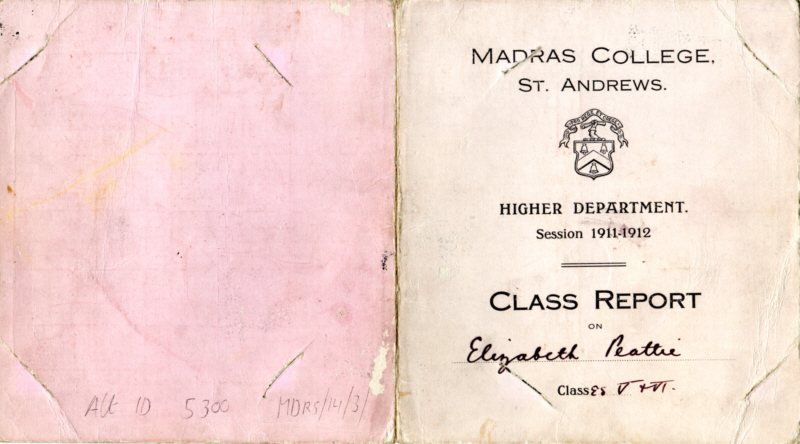 Alt ID 5300 MDRS/14/3/
MADRAS COLLEGE,
ST. ANDREWS.
HIGHER DEPARTMENT.
Session 1911-1912
CLASS REPORT
ON
Elizabeth Beattie
Classes V + VI.